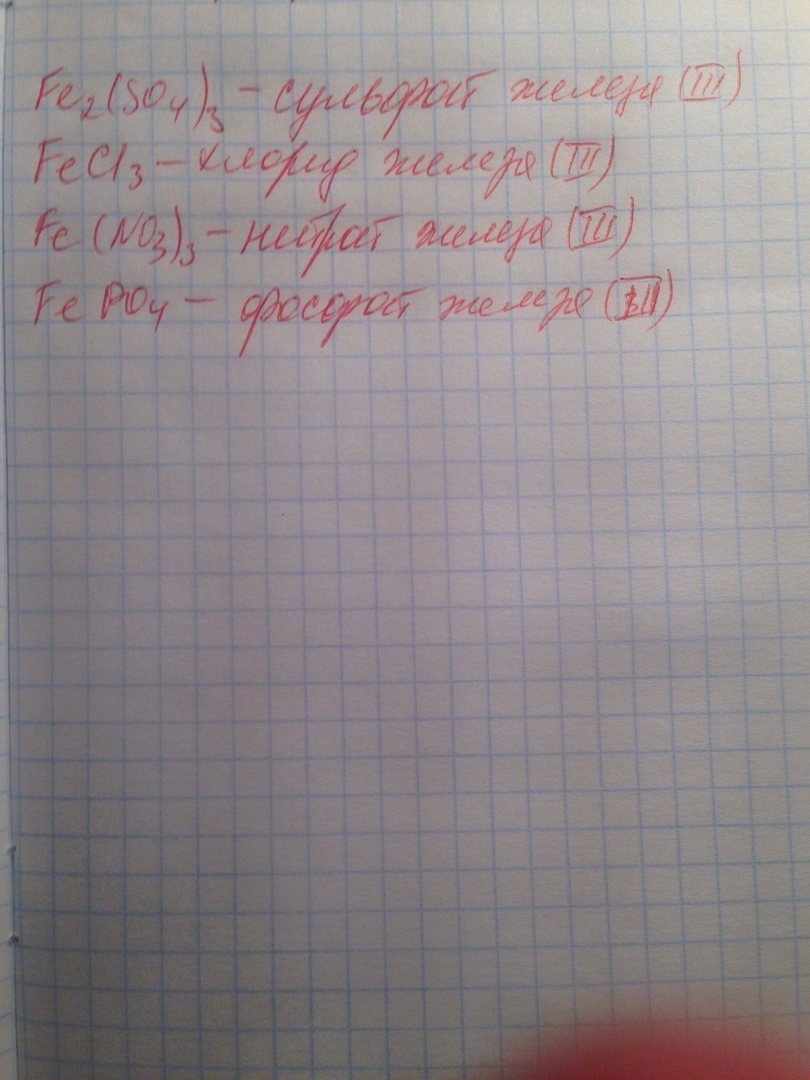 Fe₂(SO₄)₃ – сульфат железа (III)
FeCl₃ – хлорид железа (III)
Fe(NO₃)₃ – нитрат железа (III)
FePO₄ – фосфат железа (III)